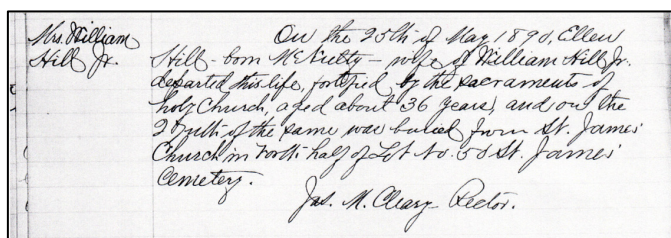 Mrs. William
Hill Jr.
On the 25th of May 1890, Ellen
Hill – born McNulty – wife of William Hill Jr.
departed this life, fortified by the sacraments of
holy Church, aged about 36 years, and on the
of the same was buried from St. James'
Church in north half of Lot No. 50 St. James'
Cemetery.
Jas. M. Cleary Rector.